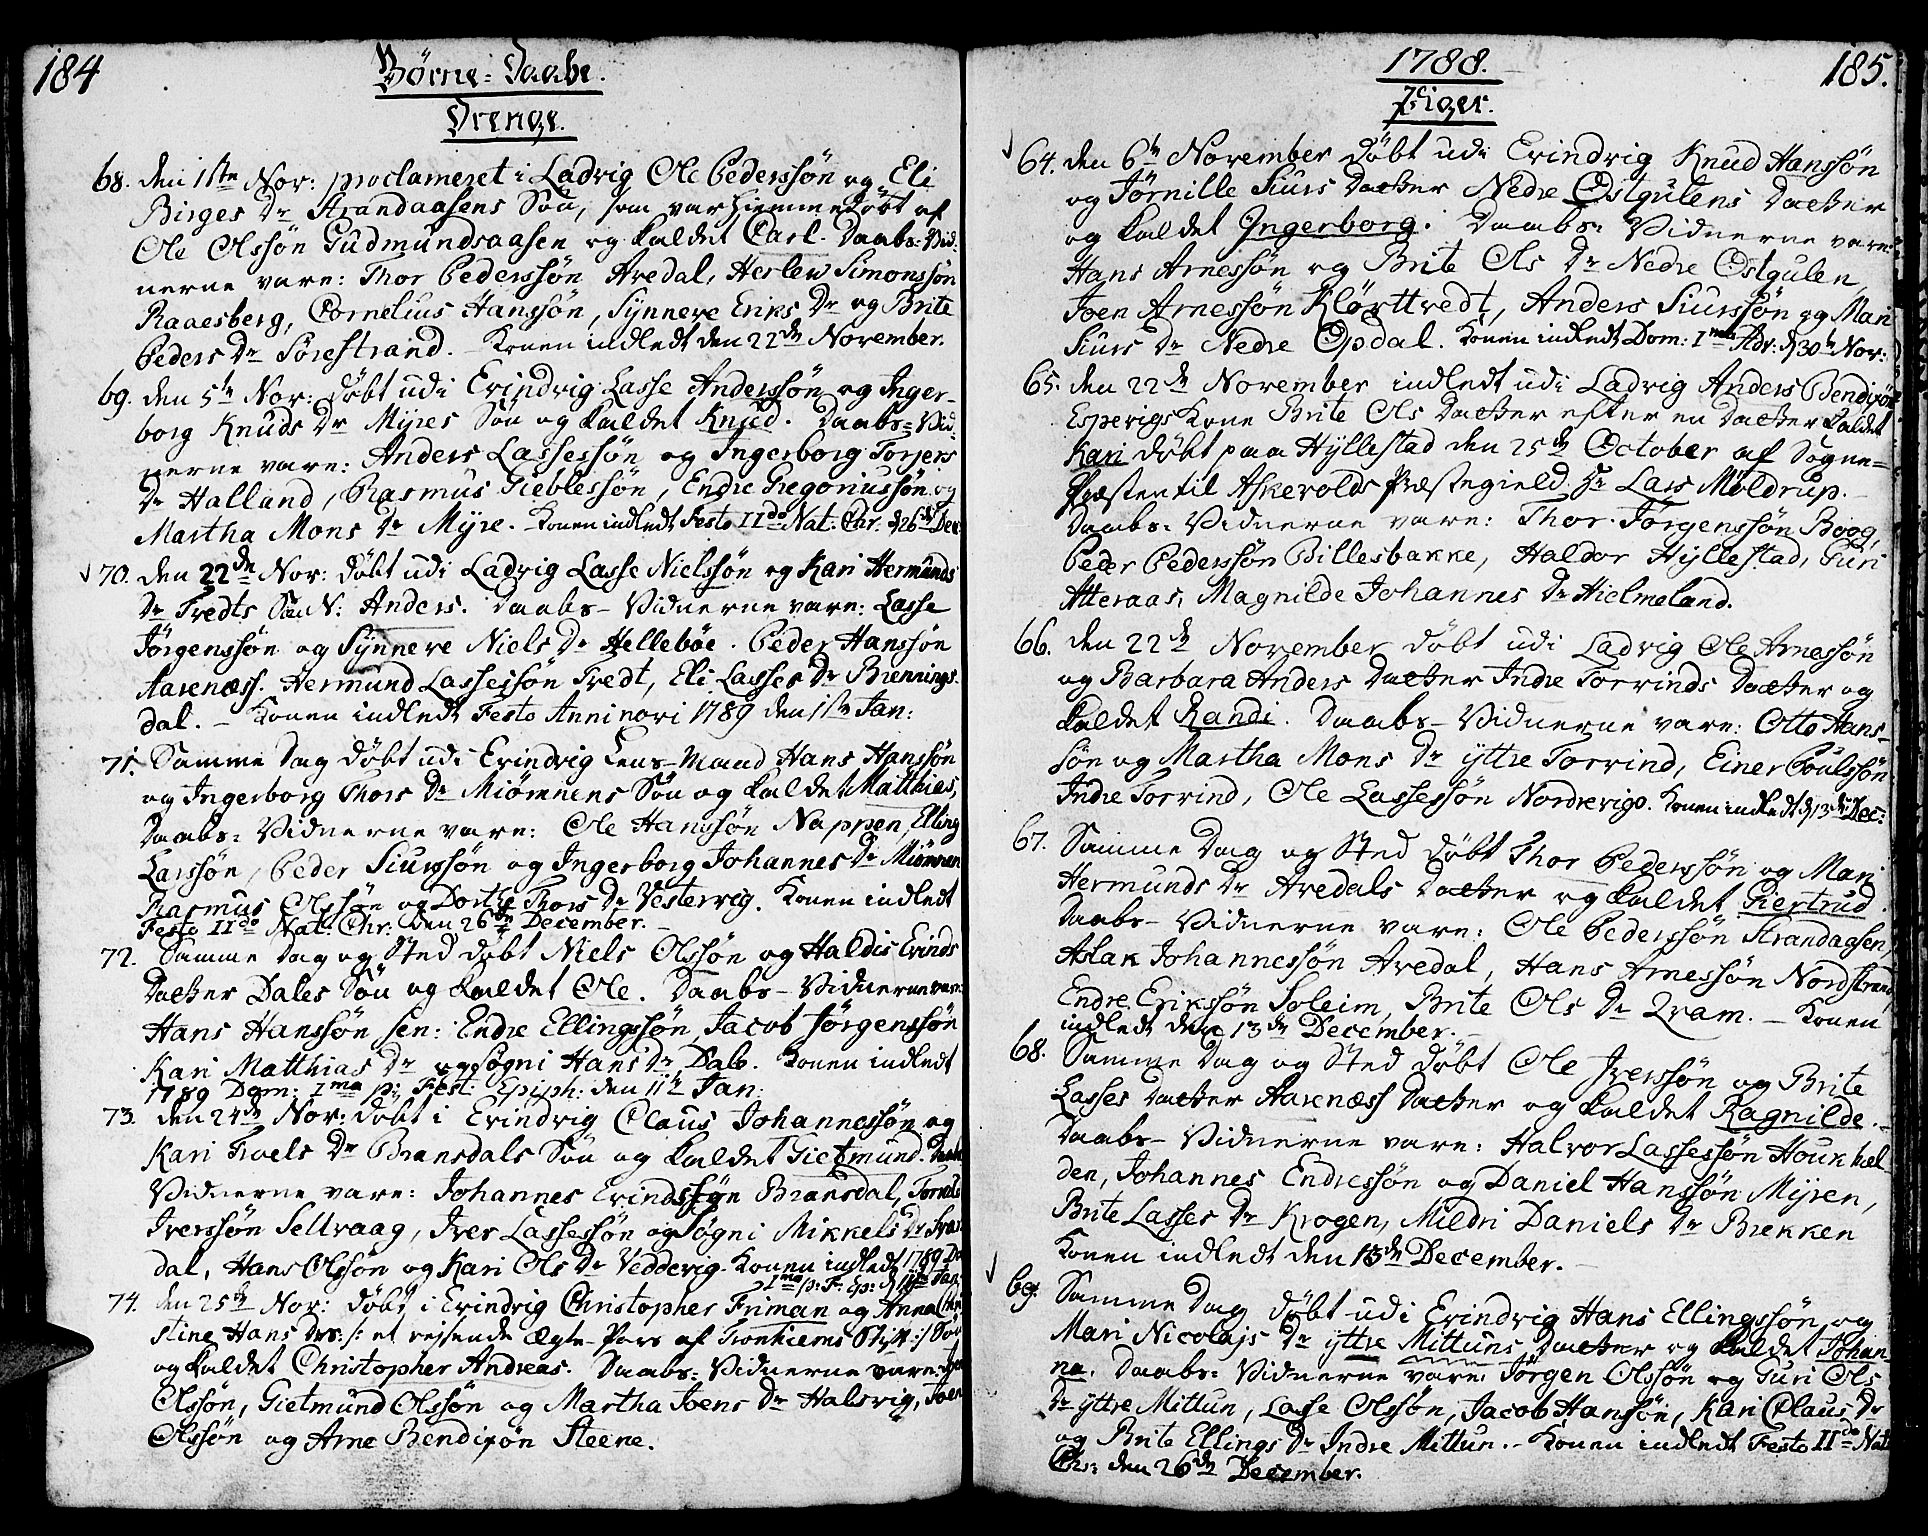 184
Börne-Daabe.
Drenge.
68. den 1ste Nov: proclameret i Ladvig Ole Pederssön og Eli
Birges Dr Strandaasens Sön, som var hjemmedöbt af
Ole Olssön Gudmundsaasen og kaldet Carl. Daabs-Vid-
nerne vare: Thor Pederssön Avedal, Herlew Simonssön
Raaesberg, Cornelius Hanssön, Synneve Eriks Dr og Brite
Peders Dr Sörestrand. - Konen indledt den 22de November.
69. den 5te Nov: döbt udi Evindvig Lasse Anderssön og Inger-
borg Knuds Dr Myres Sön og kaldet Knud. Daabs-Vid-
nerne vare: Anders Lassessön og Ingerborg Torjers
Dr Halland, Rasmus Gieblessön, Endre Gregoriussön og
Martha Mons Dr Myre. - Konen indledt Festo IIdo Nat: Chr: d 26de Dec:
70. den 22de Nov: döbt udi Ladvig Lasse Nielssön og Kari Hermunds
Dr Tredts Sön N: Anders. Daabs-Vidnerne vare: Lasse
Jörgenssön og Synneve Niels Dr Helleböe. Peder Hanssön
Aarenæss. Hermund Lassessön Tredt, Eli Lasses Dr Brennings-
dal. - Konen indledt Festo Anni novi 1789 den 1ste Jan:
71. Samme Dag döbt udi Evindvig Lens-Mand Hans Hanssön
og Ingerborg Thors Dr Miömnens Sön og kaldet Matthies,
Daabs-Vidnerne vare: Ole Hanssön Nappen, Elling
Larssön, Peder Siurssön og Ingerborg Johannes Dr Miömnen
Rasmus Olssön og Dorthe Thors Dr Vestervig. Konen indledt
Festo IIdo Nat: Chr: den 26de December. -
72. Samme Dag og Sted döbt Niels Olssön og Haldis Evinds
Datter Dales Sön og kaldet Ole. Daabs-Vidnerne var:
Hans Hanssön sen: Endre Ellingssön, Jacob Jörgenssön
Kari Matthias Dr og Sögni Hans Dr Dale. Konen indledt
1789 Dom: Ima p: Fest: Epiph: den 11te Jan:
73. den 24de Nov: döbt i Evindvig Claus Johannessön og
Kari Troels Dr Bransdals Sön og kaldet Gietmund. Daabs
Vidnerne vare: Johannes Evindssön Bransdal,
Iverssön Sellvaag, Iver Lassessön og Sögni Mikkels Dr
dal, Hans Olssön og Kari Ols Dr Veddevig. Konen indledt 1789 Do
Ima p: F. Ep: d 11te Jan:
74. den 25de Nov: döbt i Evindvig Christopher Friman og Anna Chri
stine Hans Drs: /: et rejsende Ægte-Par af Tronhiems Stift :/ Sön
og kaldet Christopher Andreas. Daabs-Vidnerne vare:
Olssön, Gietmund Olssön og Martha Joens Dr Halsvig, Joen
Olssön og Arne Bendixön Steene.
1788.
185.
Piger.
64. den 6te November döbt udi Evindvig Knud Hanssön
og Törnille Siurs Datter Nedre Ostgulens Datter
og kaldet Ingerborg. Daabs-Vidnerne vare:
Hans Arnessön og Brite Ols Dr Nedre Ostgulen,
Joen Arnessön Klörttvedt, Anders Siurssön og Mari
Siurs Dr Nedre Opdal. Konen indledt Dom: Ima Adv: d 30te Nov:
65. den 22de November indledt udi Ladvig Anders Bendixön
Espevigs Kone Brite Ols Datter efter en Datter kaldet
Kari döbt paa Hyllestad den 25de October af Sogne-
Præsten til Askevolds Præstegield Hr Lars Moldrup. -
Daabs-Vidnerne vare: Thor Jörgenssön Boog,
Peder Pederssön Billesbakke, Haldor Hyllestad, Guri
Atteraas, Magnilde Johannes Dr Hielmeland.
66. den 22de November döbt udi Ladvig Ole Arnessön
og Barbara Anders Datter Indre Torvinds Datter og
kaldet Randi. Daabs-Vidnerne vare: Otto Hans-
sön og Martha Mons Dr yttre Torvind, Einer Poulssön
Indre Torvind, Ole Lassessön Nordrevigs. Konen indledt d 13de Dec:
67. Samme Dag og Sted döbt Thor Pederssön og Mari
Hermunds Dr Avedals Datter og kaldet Giertrud.
Daabs-Vidnerne vare: Ole Pederssön Strandaasen,
Aslak Johannessön Avedal, Hans Arnessön Nordstrand,
Endre Erikssön Soleim, Brite Ols Dr Qvam. - Konen
indledt den 13de December. -
68. Samme Dag og Sted döbt Ole Iverssön og Brite
Lasses Datter Aarenæss Datter og kaldet Ragnilde. -
Daabs-Vidnerne vare: Halvor Lassessön
den, Johannes Endressön og Daniel Hanssön Myren,
Brite Lasses Dr Krogen, Mildri Daniels Dr Brekken
Konen indledt den 13de December. -
69. Samme Dag döbt udi Evindvig Hans Ellingssön og
Mari Nicolajs Dr yttre Mittuns Datter og kaldet Johan-
na. Daabs-Vidnerne vare: Jörgen Olssön og Guri Ols
Dr yttre Mittun, Lasse Olssön, Jacob Hanssön, Kari Claus Dr
og Brite Ellings Dr Indre Mittun. - Konen indledt Festo IIdo Nat:
Chr: den 26de December.